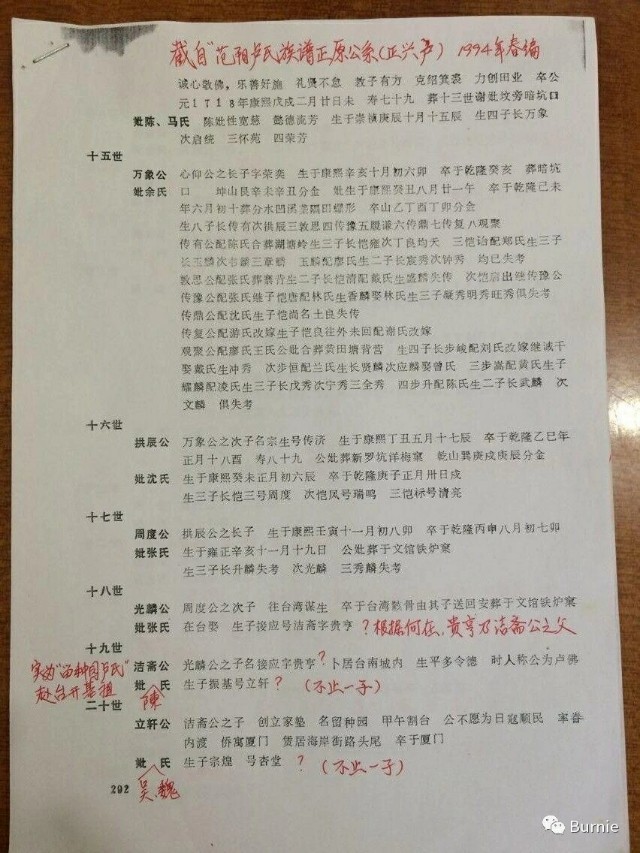 截自“范阳卢氏族谱正原公系(正兴卢) 1994年春编
诚心敦佛，乐善好施 礼贤不怠 教子有方 克绍箕裘 力创田业 卒公
元1718年康熙戊戌二月廿日未 寿七十九 葬十三世谢妣坟旁暗坑口
妣陈、马氏 陈妣性宽慈 懿德流芳 生于崇祯庚辰十月十五辰 生四子长万象
次启统 三怀苑 四荣芳
十五世
万象公 心仰公之长子字荣奕 生于康熙辛亥十月初六卯 卒于乾隆癸亥 葬暗坑
妣余氏 口 坤山艮辛未辛丑分金 妣生于康熙癸丑八月廿一午 卒于乾隆己未
年六月初十葬分水凹溪 形 卒山乙丁酉丁卯分金
生八子长传有次拱辰三敦思四传豫五 谦六传鼎七传复八观聚
传有公配陈氏合葬湖塘岭生三子长恺雍次丁良均夭 三恺诒配郑氏生三子
长玉麟次 三章 玉麟配廖氏生二子长宸秀次钟秀 均已失考
敦思公配张氏葬 背生二子长恺清配戴氏生盛麟失传 次恺扇出继传豫公
传豫公配张氏继子恺唐配林氏生香麟娶林氏生三子凝秀明秀旺秀俱失考
传鼎公配沈氏生子恺尚名土良失传
传复公配游氏改嫁生子恺良往外未回配谢氏改嫁
观聚公配廖氏王氏公妣合葬黄田塘背营 生四子长步峻配刘氏改嫁继诚干
娶戴氏生冲秀 次步恒配兰氏生长贤麟次应麟娶曾氏 三步嵩配黄氏生子
耀麟配凌氏生三子长戊秀次宁秀三全秀 四步升配陈氏生二子长武麟 次
文麟 俱失考
十六世
拱辰公 万象公之次子名宗生号传济 生于康熙丁丑五月十七辰 卒于乾隆乙巳年
正月十八酉 寿八十九 公妣葬新罗坑洋梅窠 乾山巽庚戌庚辰分金
妣沈氏 生于康熙癸未正月初六辰 卒于乾隆庚子正月卅日戌
生三子长恺三号周度 次恺风号瑞鸣 三恺标号清亮
十七世
周度公 拱辰公之长子 生于康熙壬寅十一月初八卯 卒于乾隆丙申八月初七卯
妣张氏 生于雍正辛亥十一月十九日 公妣葬于文馆铁炉窠
生三子长升麟失考 次光麟 三秀麟失考
十八世
光麟公 周度公之次子 往台湾谋生 卒于台湾骸骨由其子送回安葬于文馆铁炉窠
妣张氏 在台娶 生子接应号洁斋字贵亨 ？根据何在，贵亨乃洁斋公之父
十九世
洁斋公 光麟公之子名接应字贵亨？卜居台南城内 生平多令德 时人称公为卢佛
实为“西种园卢氏”
赴台开基祖
妣 氏 生子振基号立轩？（不止一子）
陳
二十世
立轩公 洁斋公之子 创立家塾 名留种园 甲午割台 公不愿为日寇顺民 率眷
内渡 侨寓厦门 赁居海岸街路头尾 卒于厦门
妣 氏 生子宗煌 号杏堂 ？（不止一子）
吴、魏
292
Burnie